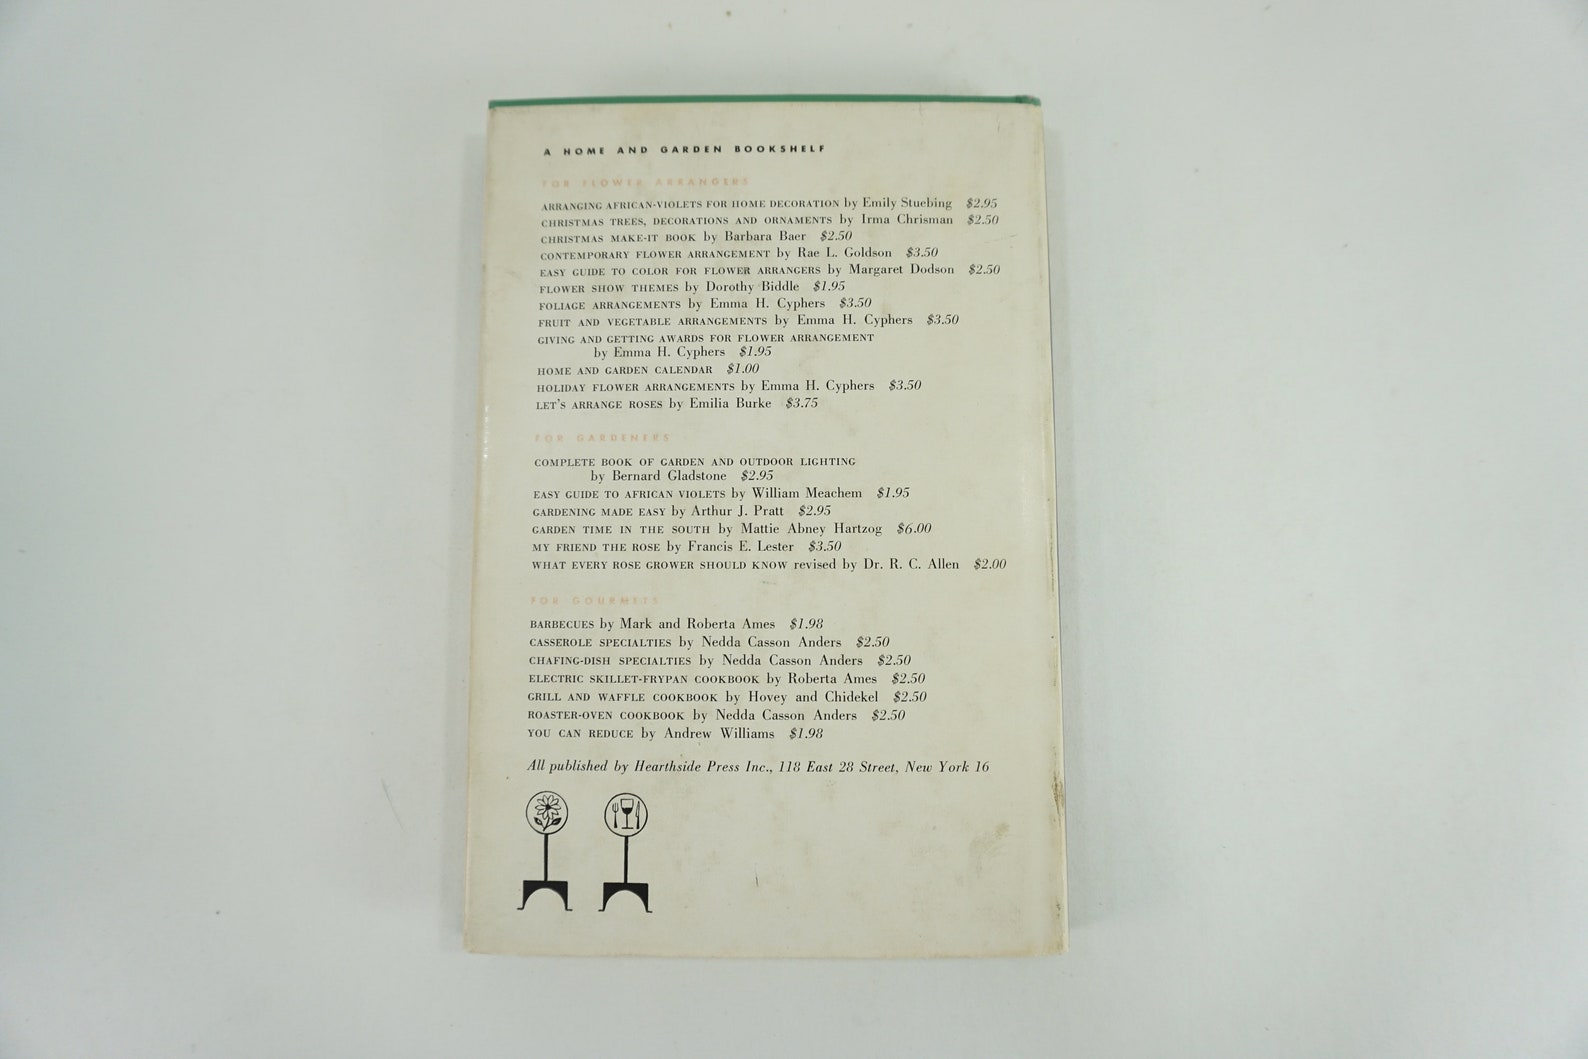 A HOME AND GARDEN BOOKSHELF
FOR FLOWER ARRANGERS
ARRANGING AFRICAN-VIOLETS FOR HOME DECORATION by Emily Stuebing $2.95
CHRISTMAS TREES, DECORATIONS AND ORNAMENTS by Irma Chrisman $2.50
CHRISTMAS MAKE-IT BOOK by Barbara Baer $2.50
CONTEMPORARY FLOWER ARRANGEMENT by Rae L. Goldson $3.50
EASY GUIDE TO COLOR FOR FLOWER ARRANGERS by Margaret Dodson $2.50
FLOWER SHOW THEMES by Dorothy Biddle $1.95
FOLIAGE ARRANGEMENTS by Emma H. Cyphers $3.50
FRUIT AND VEGETABLE ARRANGEMENTS by Emma H. Cyphers $3.50
GIVING AND GETTING AWARDS FOR FLOWER ARRANGEMENT
by Emma H. Cyphers $1.95
HOME AND GARDEN CALENDAR $1.00
HOLIDAY FLOWER ARRANGEMENTS by Emma H. Cyphers $3.50
LET'S ARRANGE ROSES by Emilia Burke $3.75
FOR GARDENERS
COMPLETE BOOK OF GARDEN AND OUTDOOR LIGHTING
by Bernard Gladstone $2.95
EASY GUIDE TO AFRICAN VIOLETS by William Meachem $1.95
GARDENING MADE EASY by Arthur J. Pratt $2.95
GARDEN TIME IN THE SOUTH by Mattie Abney Hartzog $6.00
MY FRIEND THE ROSE by Francis E. Lester $3.50
WHAT EVERY ROSE GROWER SHOULD KNOW revised by Dr. R. C. Allen $2.00
FOR GOURMETS
BARBECUES by Mark and Roberta Ames $1.98
CASSEROLE SPECIALTIES by Nedda Casson Anders $2.50
CHAFING-DISH SPECIALTIES by Nedda Casson Anders $2.50
ELECTRIC SKILLET-FRYPAN COOKBOOK by Roberta Ames $2.50
GRILL AND WAFFLE COOKBOOK by Hovey and Chidekel $2.50
ROASTER-OVEN COOKBOOK by Nedda Casson Anders $2.50
YOU CAN REDUCE by Andrew Williams $1.98
All published by Hearthside Press Inc., 118 East 28 Street, New York 16